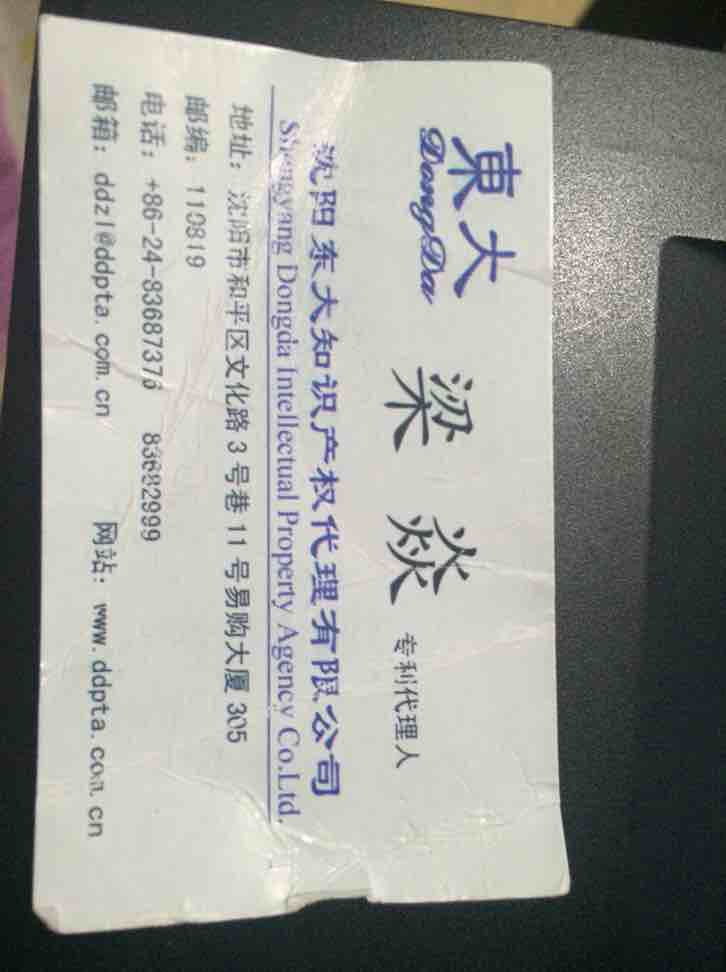 東大
DongDa
梁 焱 专利代理人
沈阳东大知识产权代理有限公司
Shengyang Dongda Intellectual Property Agency Co.Ltd.
地址：沈阳市和平区文化路3号巷11号易购大厦305
邮编：110819
电话：+86-24-83687373 83682999
邮箱：ddzl@ddpta.com.cn 网站：www.ddpta.com.cn